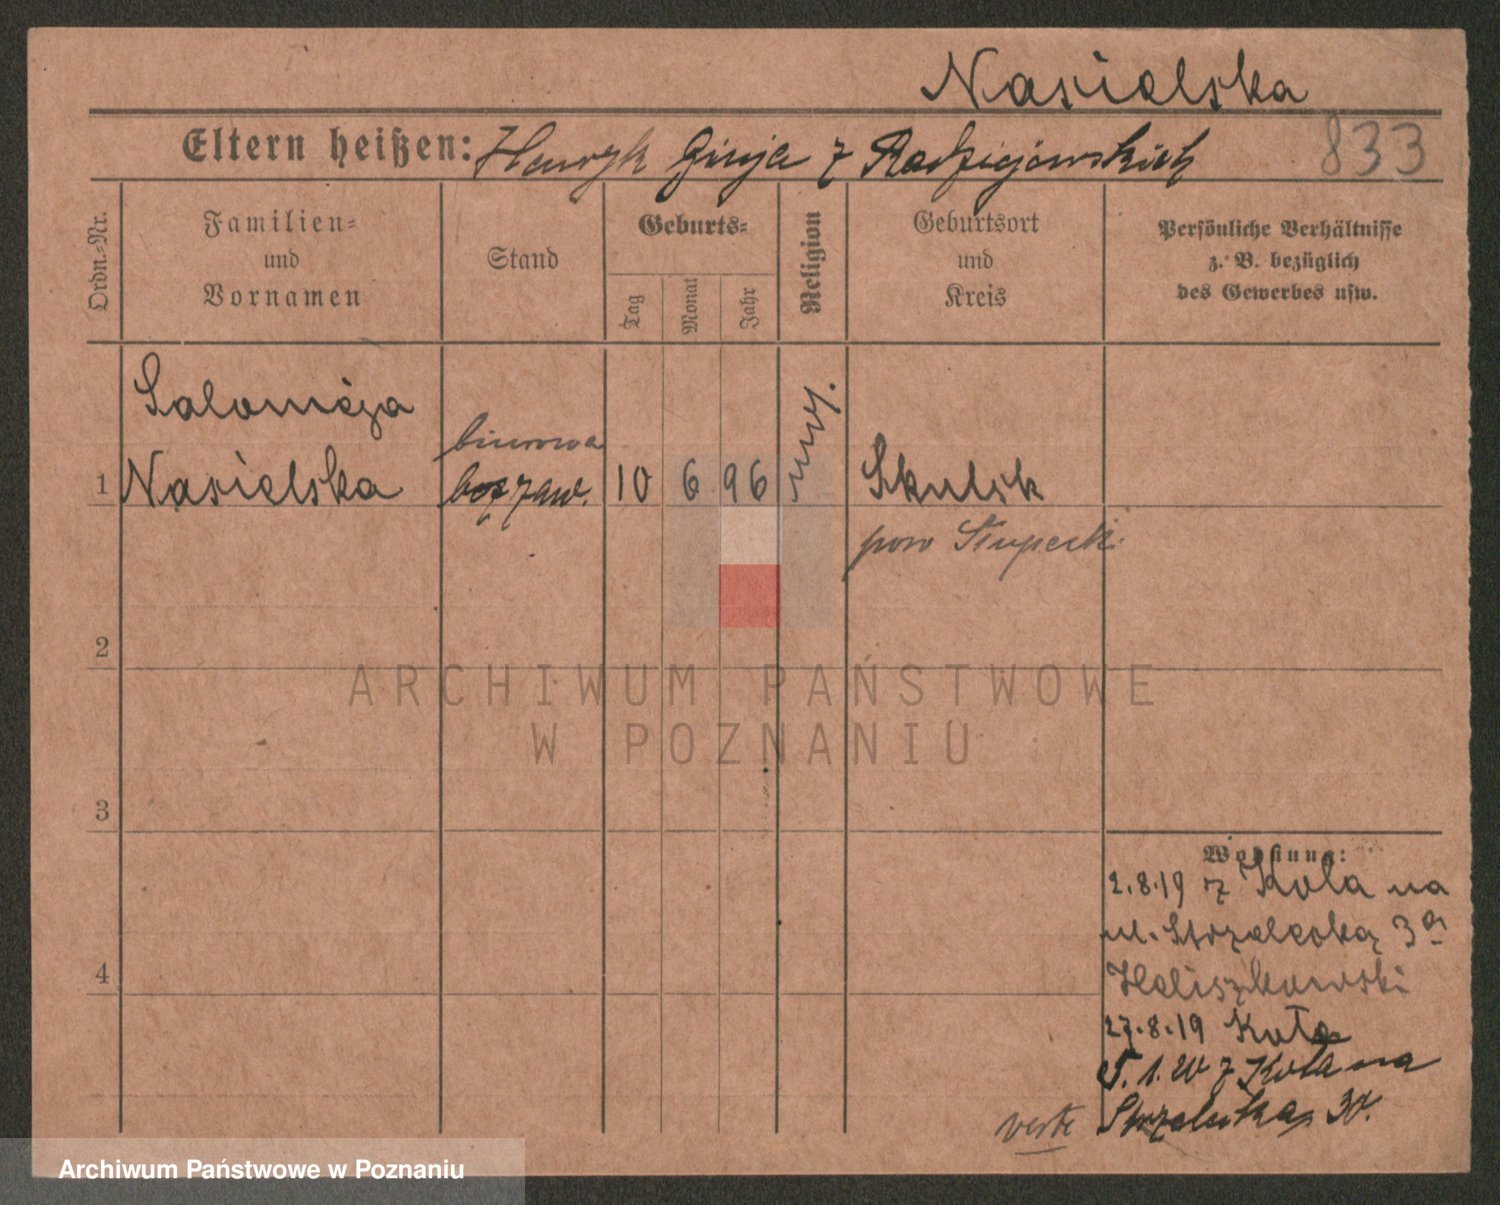 Nasielska
Eltern heißen: Henryk Ginja z Radziejowskich 833
Ordn.-Nr.
Familien-
und
Vornamen
Stand
Geburts-
Tag
Monat
Jahr
Religion
Geburtsort
und
Kreis
Persönliche Verhältnisse
z. B. bezüglich
des Gewerbes usw.
Salomeja
biurowa
1 Nasielska bez zaw. 10 6 96 Skulsk
pow Słupecki
2
ARCHIWUM PAŃSTWOWE
W POZNANIU
3
Wohnung:
2.8.19 z Koła na
ul. Strzelecką 3a
4
27.8.19 Koła
5.1.20 z Koła na
verte Strzelecka
Archiwum Państwowe w Poznaniu